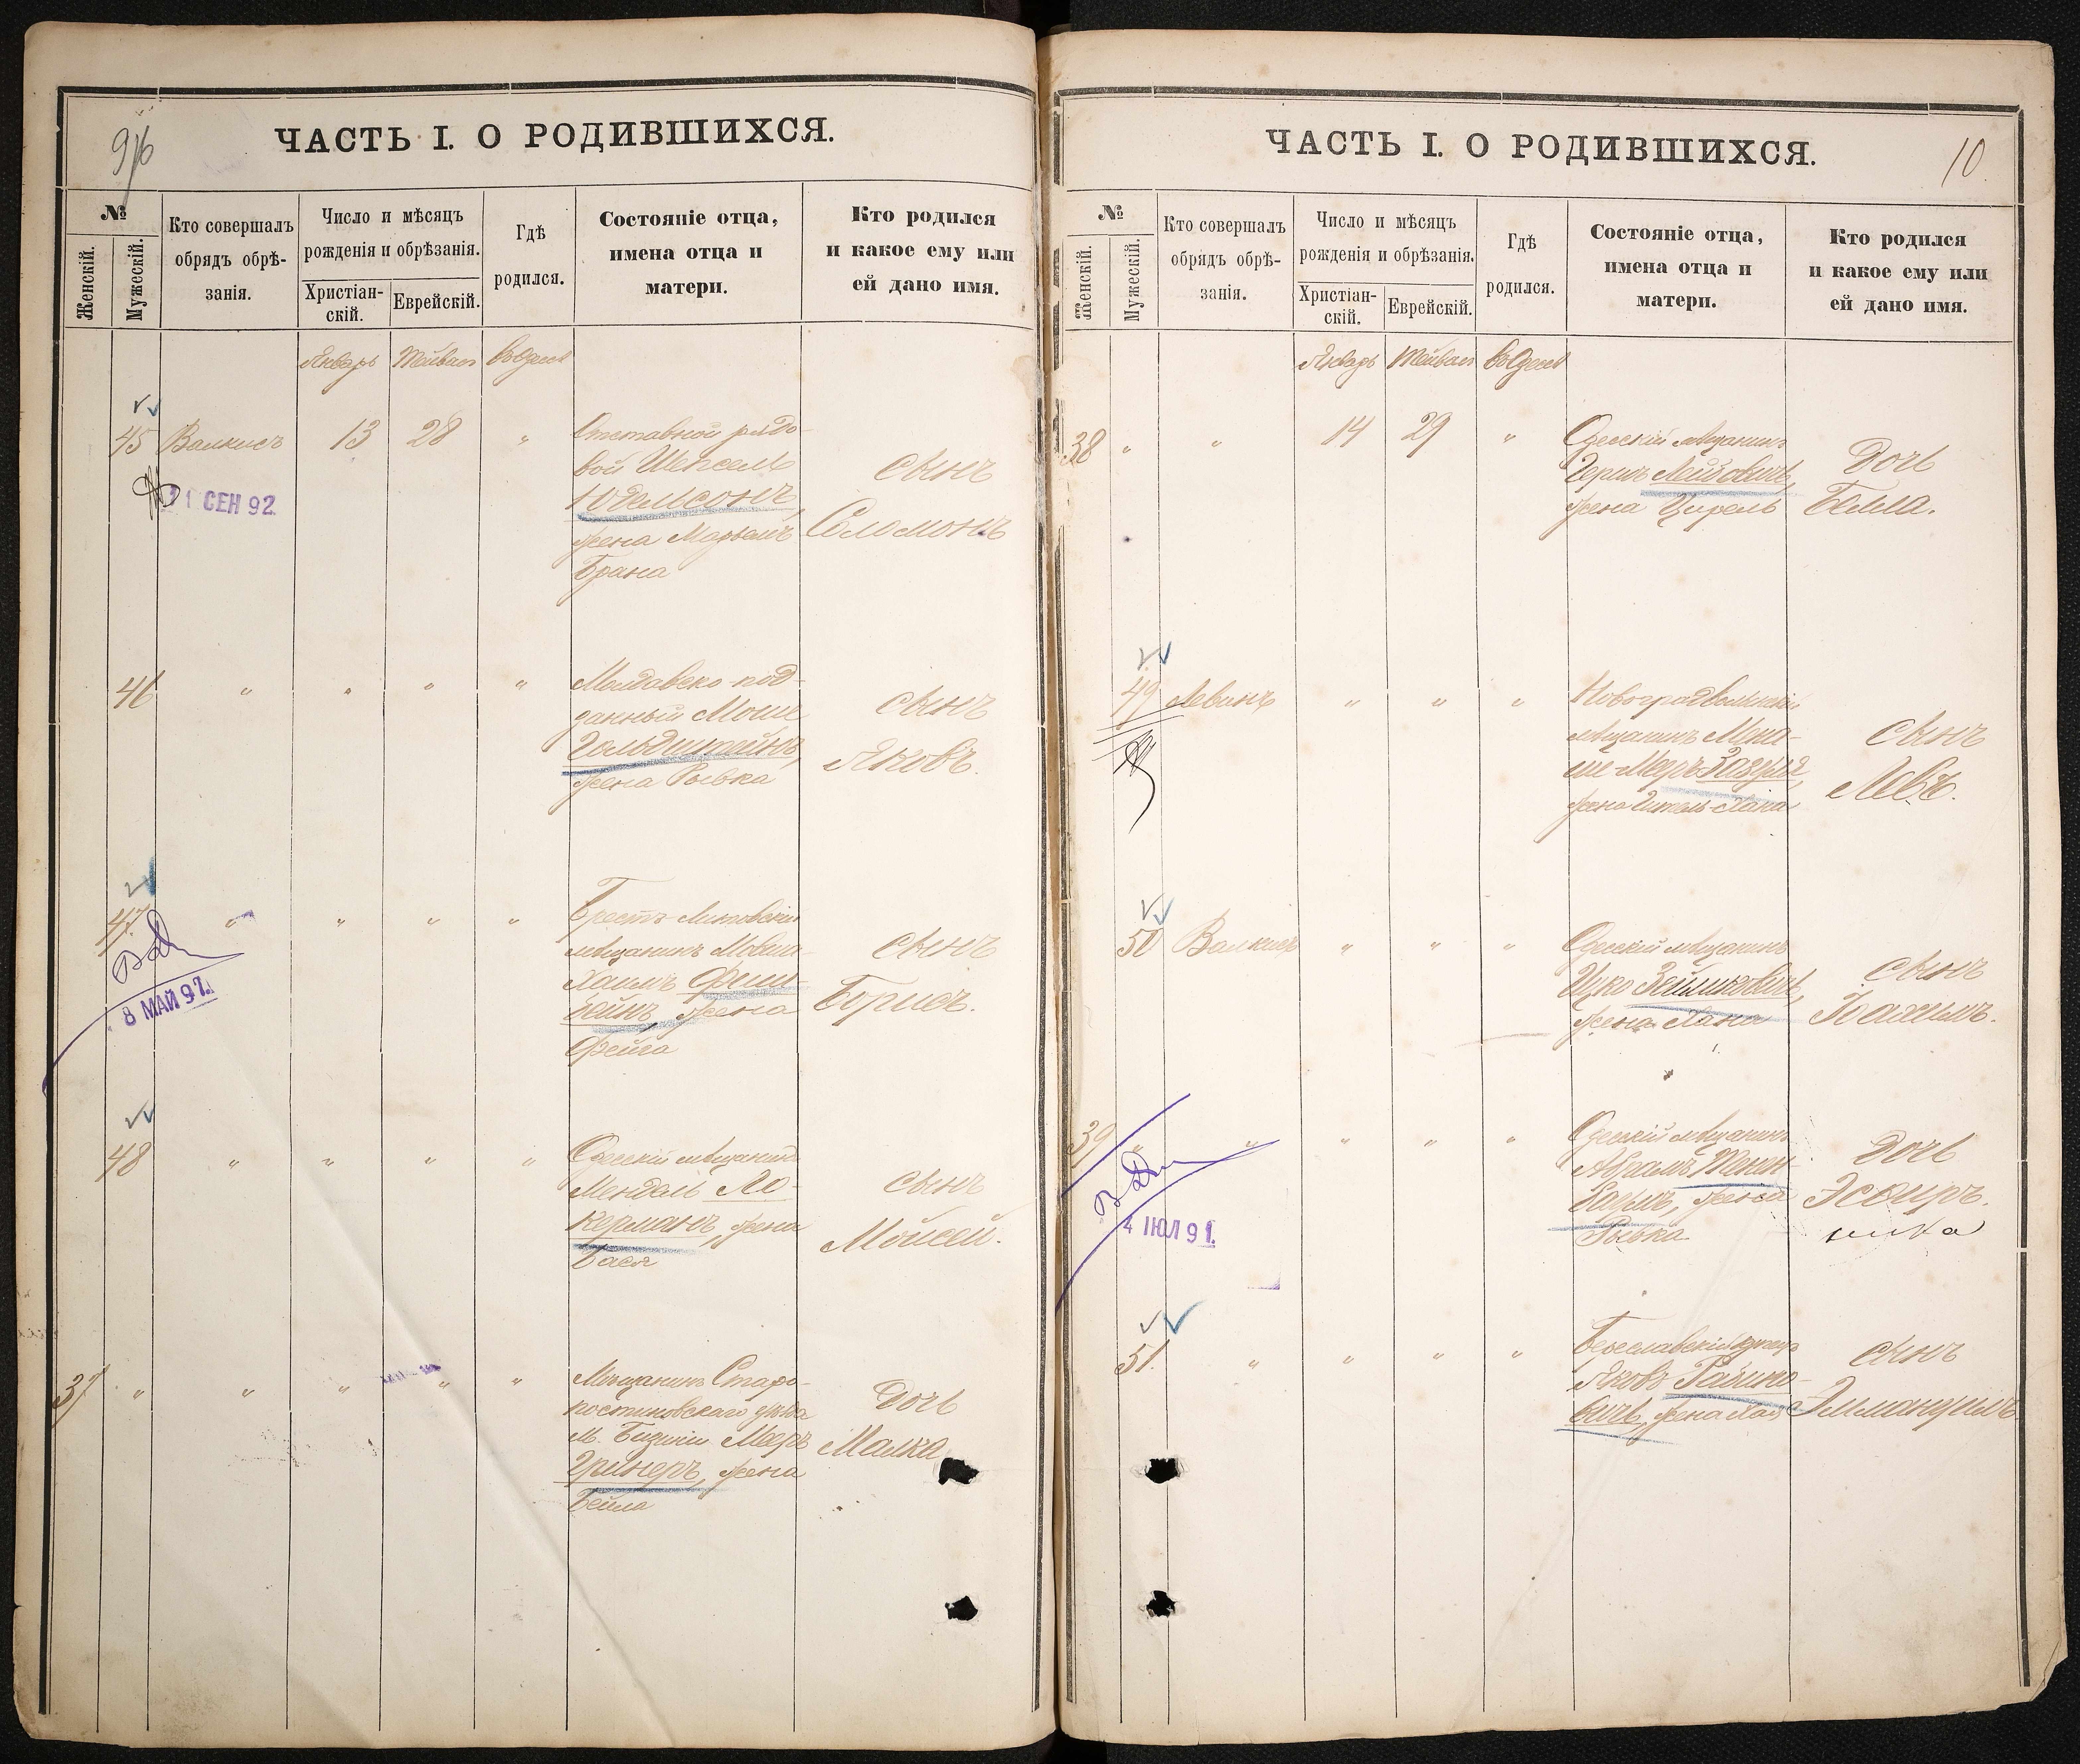 9/16
ЧАСТЬ I. О РОДИВШИХСЯ.
№
Женскій.
Мужескій.
Кто совершалъ
обрядъ обрѣ-
занія.
Число и мѣсяцъ
рожденія и обрѣзанія.
Христіан-
скій.
Еврейскій.
Гдѣ
родился.
Состояніе отца,
имена отца и
матери.
Кто родился
и какое ему или
ей дано имя.
Январь Тейвас въ Одессѣ
45 Валкисъ 13 28 "
Отставной рядо-
вой Шепсель
Юдельсонъ,
жена Марьямъ
Брана
сынъ
Соломонъ
11 СЕН 92
46 " " " "
Молдавско-под-
данный Мошe
Гольдштейнъ,
жена Рывка
сынъ
Яковъ.
47 " " " "
Брестъ-Литовскій
мѣщанинъ Мовша-
Хаимъ Фиш-
бейнъ, жена
Фейга
сынъ
Борисъ.
8 МАЙ 97.
48 " " " "
Одесскій мѣщанинъ
Мендель Ло-
керманъ, жена
Бася
сынъ
Мойсей.
37 " " " " "
Мѣщанинъ Старо-
костиновскаго уѣзда
м. Мееръ
Гринеръ, жена
Бейла
Дочь
Малка
10
ЧАСТЬ I. О РОДИВШИХСЯ.
№
Женскій.
Мужескій.
Кто совершалъ
обрядъ обрѣ-
занія.
Число и мѣсяцъ
рожденія и обрѣзанія.
Христіан-
скій.
Еврейскій.
Гдѣ
родился.
Состояніе отца,
имена отца и
матери.
Кто родился
и какое ему или
ей дано имя.
Январь Тейвас въ Одессѣ
38 " " 14 29 "
Одесскій мѣщанинъ
Герш Лейбовичъ,
жена Цирель
Дочь
Белла.
49 Левинъ " " "
Новоградволынскій
мѣщанинъ Мена-
ше-Меръ Зазуля,
жена Гитель-Хана
сынъ
Левъ.
50 Валкисъ " " "
Одесскій мѣщанинъ
Ицко Зейликовичъ,
жена Хана
сынъ
Іоахимъ.
39 " " " " "
Одесскій мѣщанинъ
Абрамъ Тенен-
баумъ, жена
Рывка
Дочь
Эсфирь.
4 ІЮЛ 91.
51. " " " "
Бериславскій
Яковъ Рабино-
вичъ, жена Хая
сынъ
Эммануилъ